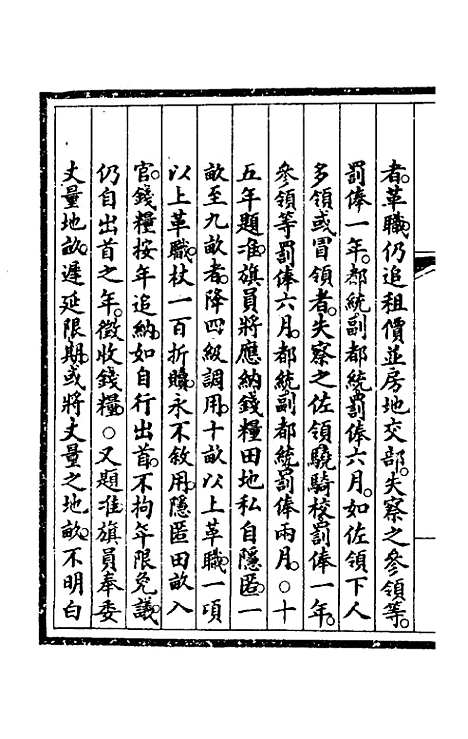 者。革職。仍追租價並房地交部。失察之參領等。
罰俸一年。都統副都統罰俸六月。如佐領下人
多領或冒領者。失察之佐領驍騎校罰俸一年。
參領等罰俸六月。都統副都統罰俸兩月。○十
五年題准。旗員將應納錢糧田地私自隱匿。一
畝至九畝者。降四級調用。十畝以上革職。一項
以上革職。杖一百折贖。永不敘用。隱匿田畝入
官。錢糧按年追納。如自行出首。不拘年限免議。
仍自出首之年。徵收錢糧。○又題准旗員奉委
丈量地畝。遲延限期。或將丈量之地畝。不明白